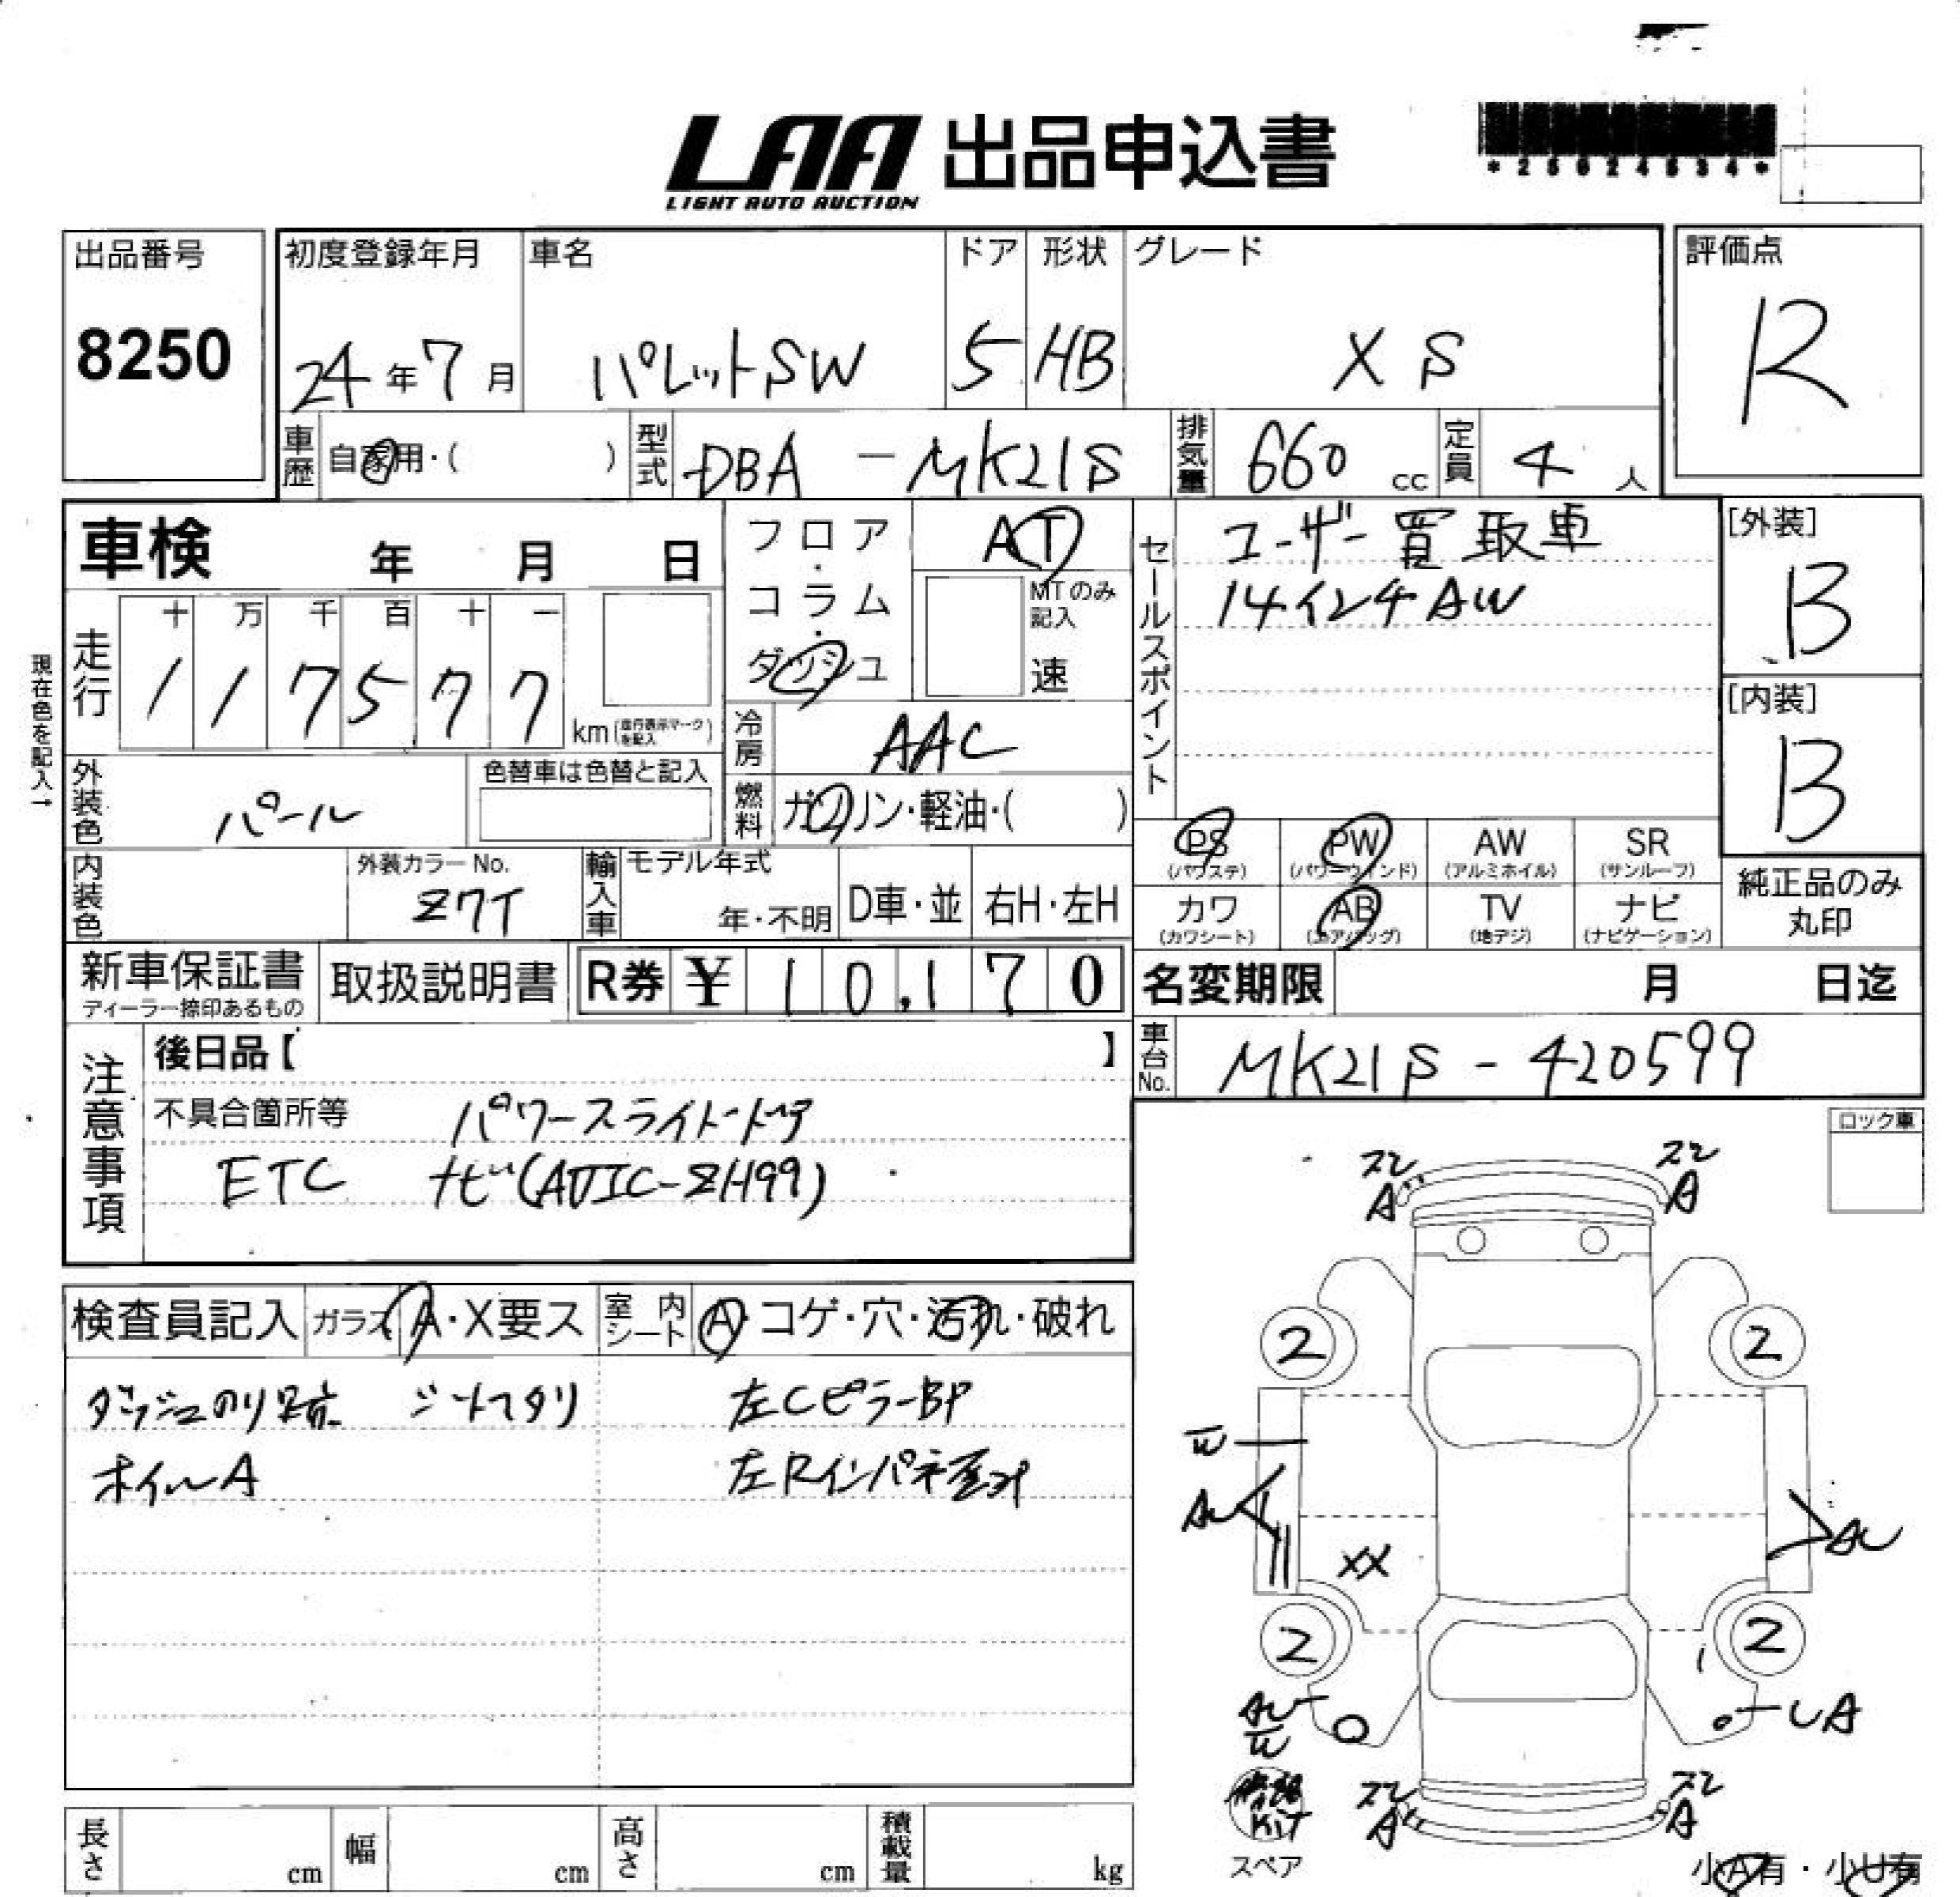 LAA 出品申込書
LIGHT AUTO AUCTION
出品番号
8250
初度登録年月
24年7月
車名
パレットSW
ドア
5
形状
HB
グレード
XS
評価点
R
車歴
自家用・( )
型式
DBA-MK21S
排気量
660 cc
定員
4 人
車検 年 月 日
フロア・コラム・ダッシュ
AT
MTのみ記入
速
セールスポイント
ユーザー買取車
14インチAW
[外装]
B
[内装]
B
現在色を記入→
走行
十 万 千 百 十 一
1 1 7 5 7 7 km
(走行表示マークを記入)
冷房
AAC
外装色
パール
色替車は色替と記入
燃料
ガソリン・軽油・( )
PS (パワステ)
PW (パワーウインド)
AW (アルミホイル)
SR (サンルーフ)
カワ (カワシート)
AB (エアバッグ)
TV (地デジ)
ナビ (ナビゲーション)
純正品のみ丸印
内装色
外装カラーNo.
Z7T
輸入車
モデル年式
年・不明
D車・並
右H・左H
新車保証書
ディーラー捺印あるもの
取扱説明書
R券 ¥ 10,170
名変期限 月 日迄
車台No.
MK21S-420599
注意事項
後日品【 】
不具合箇所等 パワースライドドア
ETC ナビ(AVIC-ZH99)
ロック車
検査員記入
ガラス A・X要ス
室内シート A・コゲ・穴・汚れ・破れ
ダッシュのり跡 シートヘタリ
左CピラーBP
ホイールA
左Rインパネ歪み
スレ
A
スレ
A
2
2
歪
AU
XX
AU
2
2
AU
歪
UA
修理KIT
スペア
スレ
A
スレ
A
小A有・小U有
長さ cm
幅 cm
高さ cm
積載量 kg